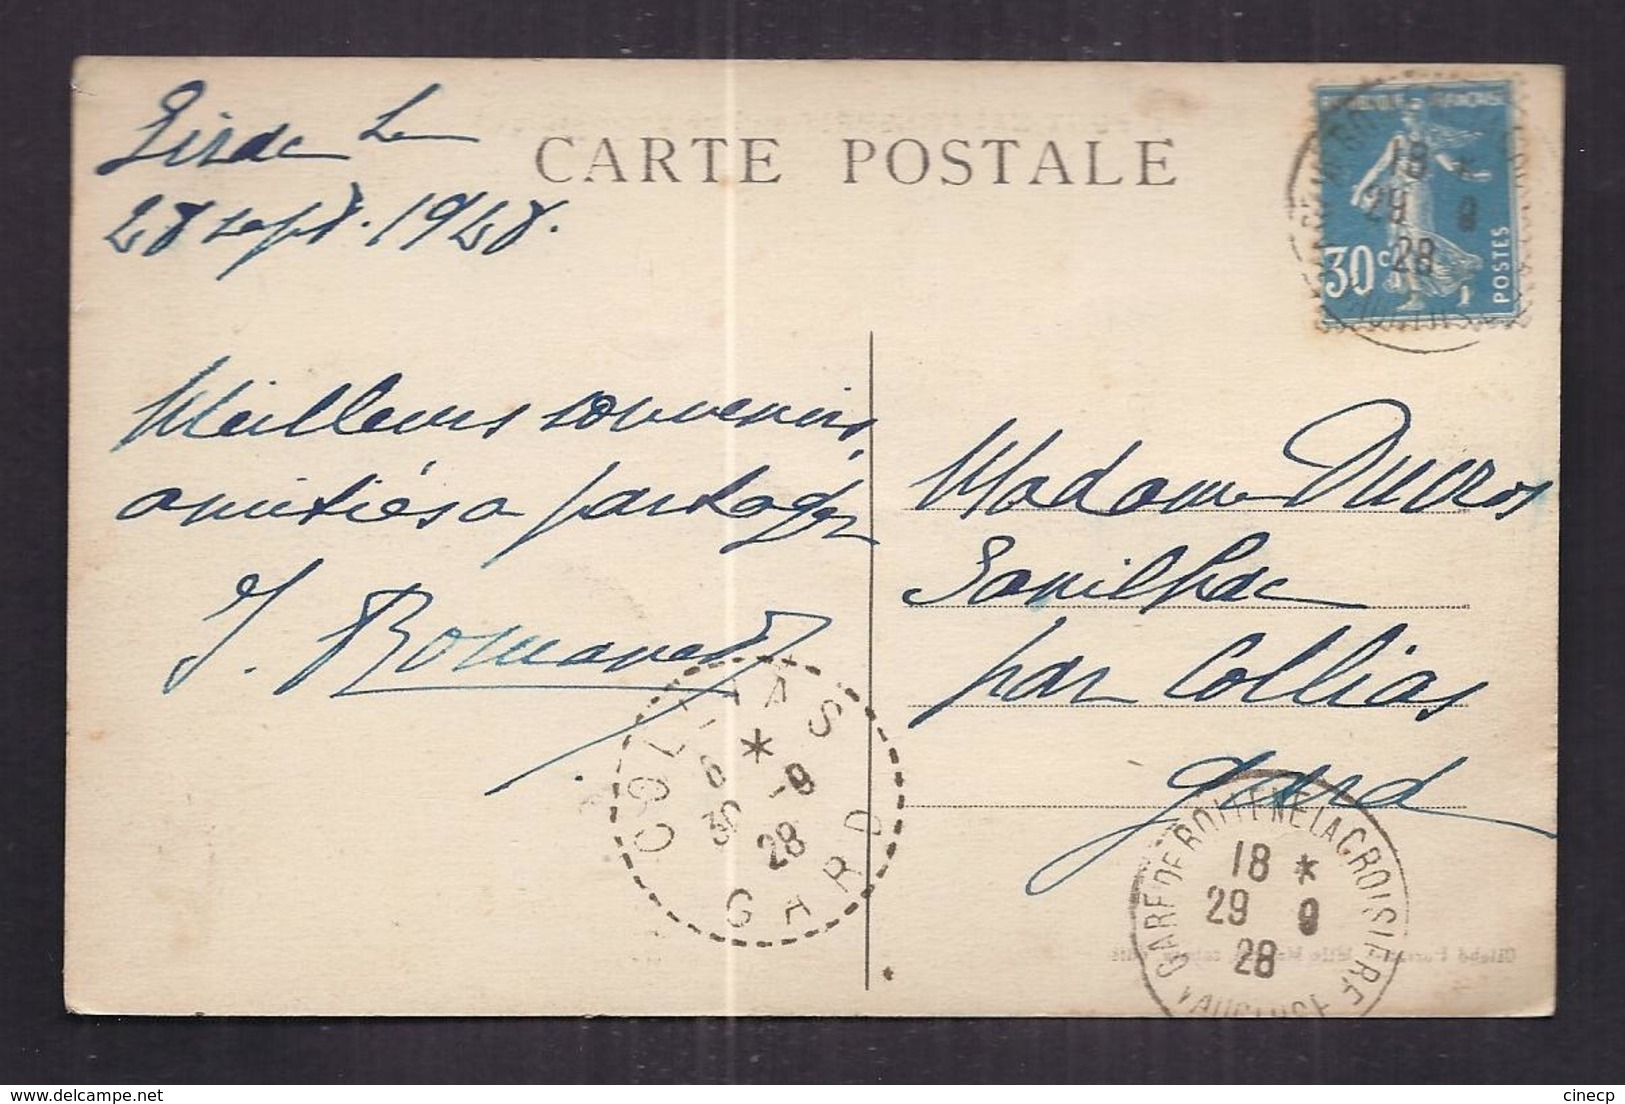 CARTE POSTALE
28 sept. 1928.
Meilleurs souvenirs,
amitiés à partager
J. Romanet
Madame Ducros
Sanilhac
par Collias
Gard
REPUBLIQUE FRANÇAISE
30c
POSTES
18 *
29 9
28
COLLIAS
*
6 -9
30 28
GARD
GARE DE BOLLENE LA CROISIERE
18 *
29 9
28
VAUCLUSE
cinecp